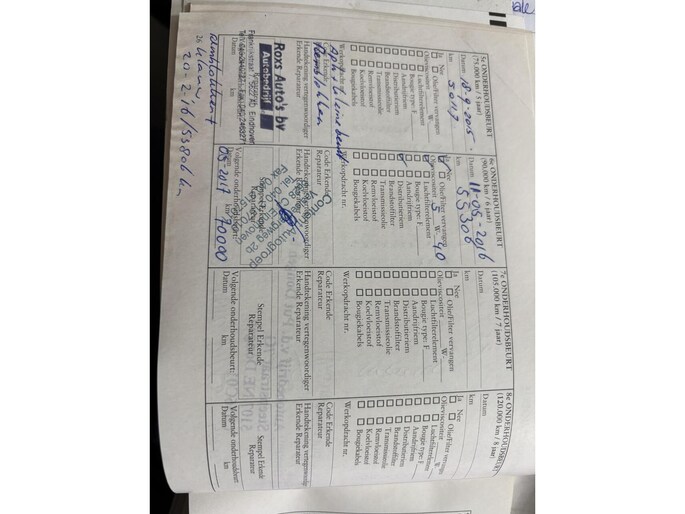 5e ONDERHOUDSBEURT
(75.000 km / 5 jaar)
Datum 18-9-2015
km
Ja Nee
Olie/Filter vervangen
Olieviscositeit W:
Luchtfilterelement
Bougie type: F
Aandrijfriem
Distributieriem
Brandstoffilter
Transmissieolie
Remvloeistof
Koelvloeistof
Bougiekabels
Werkopdracht nr.
Code Erkende
Reparateur
Handtekening vertegenwoordiger
Erkende Reparateur
Roxs Auto's bv
Autobedrijf
Datum km
20-2-16/53806 km
6e ONDERHOUDSBEURT
(90.000 km / 6 jaar)
Datum 11-05-2016
km 55306
Ja Nee
Olie/Filter vervangen
Olieviscositeit 5 W: 40
Luchtfilterelement
Bougie type: F
Aandrijfriem
Distributieriem
Brandstoffilter
Transmissieolie
Remvloeistof
Koelvloeistof
Bougiekabels
Werkopdracht nr.
Code Erkende
Reparateur
Handtekening vertegenwoordiger
Erkende Reparateur
Volgende onderhoudsbeurt:
Datum km
05-2017 70000
7e ONDERHOUDSBEURT
(105.000 km / 7 jaar)
Datum
km
Ja Nee
Olie/Filter vervangen
Olieviscositeit W:
Luchtfilterelement
Bougie type: F
Aandrijfriem
Distributieriem
Brandstoffilter
Transmissieolie
Remvloeistof
Koelvloeistof
Bougiekabels
Werkopdracht nr.
Code Erkende
Reparateur
Handtekening vertegenwoordiger
Erkende Reparateur
Stempel Erkende
Reparateur
Volgende onderhoudsbeurt:
Datum km
8e ONDERHOUDSBEURT
(120.000 km / 8 jaar)
Datum
km
Ja Nee
Olie/Filter vervangen
Olieviscositeit W:
Luchtfilterelement
Bougie type: F
Aandrijfriem
Distributieriem
Brandstoffilter
Transmissieolie
Remvloeistof
Koelvloeistof
Bougiekabels
Werkopdracht nr.
Code Erkende
Reparateur
Handtekening vertegenwoordiger
Erkende Reparateur
Stempel Erkende
Reparateur
Volgende onderhoudsbeurt:
Datum km
26